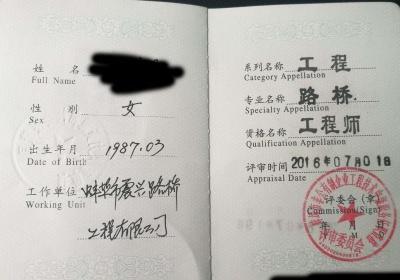 姓 名
Full Name
性 别 女
Sex
出生年月 1987.03
Date of Birth
工作单位 蚌埠市振兴路桥
Working Unit
工程有限公司
系列名称 工程
Category Appellation
专业名称 路桥.
Specialty Appellation
资格名称 工程师
Qualification Appellation
评审时间 2016年07月01日
Appraisal Date
评委会（章）
Commission(Sign)
年 月
评审委员会